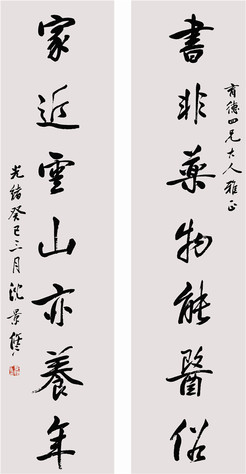 書非藥物能醫俗
育德四兄大人雅正
家近雲山亦養年
光緒癸巳三月沈景修